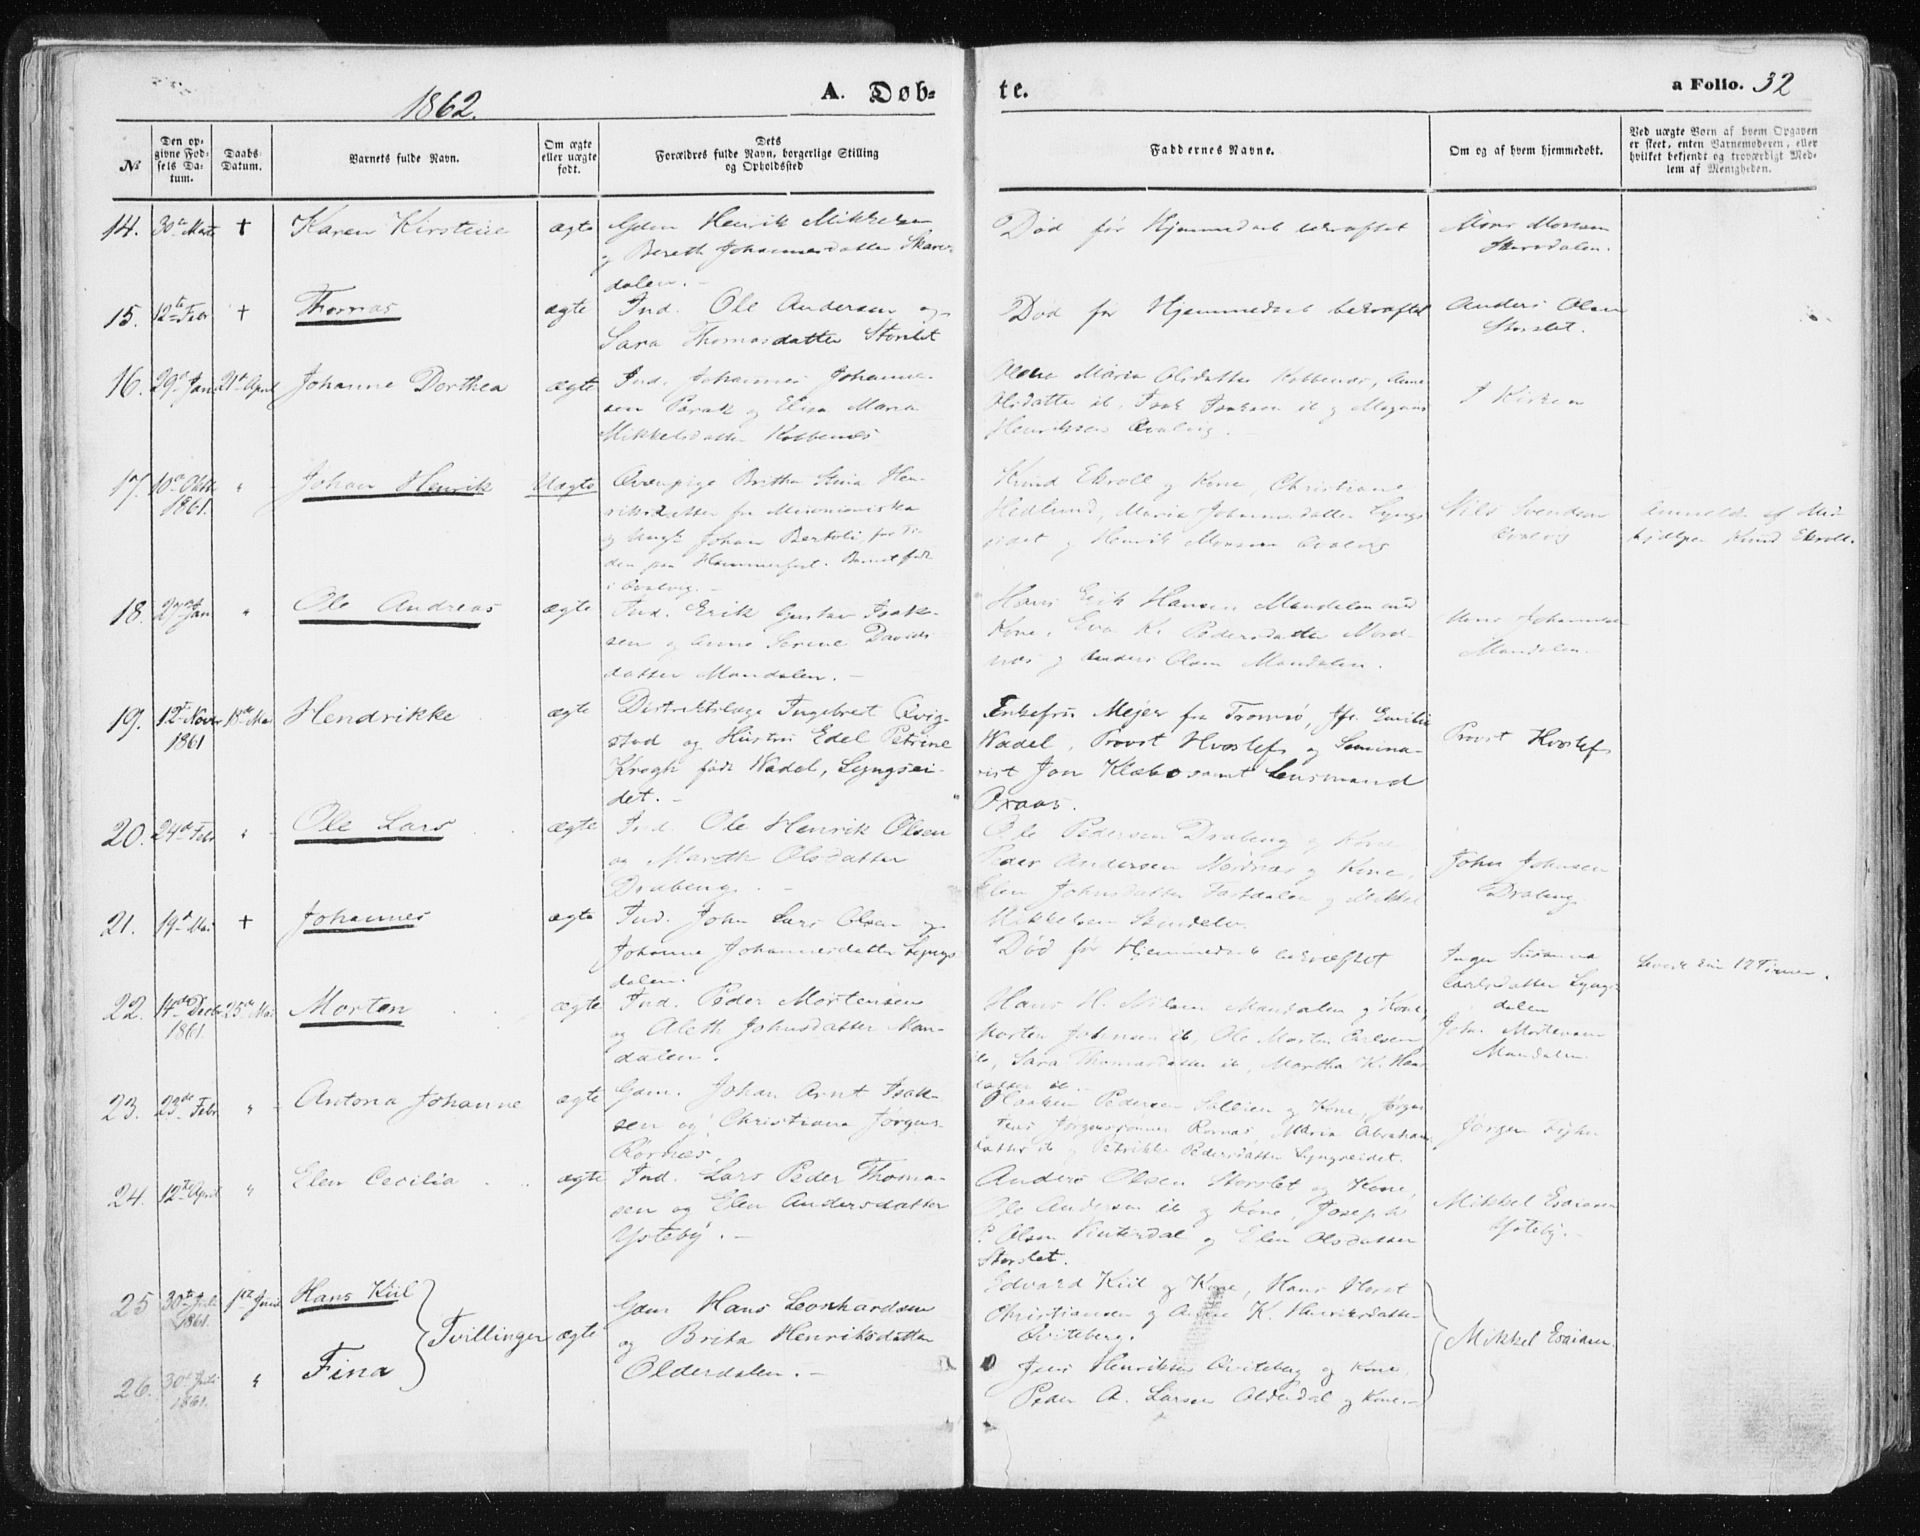 1862.
A. Døb-
te.
a Folio. 32
№
Den op-
givne Fød-
sels Da-
tum.
Daabs
Datum.
Barnets fulde Navn.
Om ægte
eller uægte
født.
Dets
Forældres fulde Navn, borgerlige Stilling
og Opholdssted
Faddernes Navne.
Om og af hvem hjemmedøbt.
Ved uægte Børn af hvem Opgaven
er skeet, enten Barnemoderen, eller
hvilket bekjendt og troværdigt Med-
lem af Menigheden.
14. 30te Marts † Karen Kirstine ægte Gdm Henrik Mikkelsen
og Bereth Johannesdatter Skarv-
dalen.-
Død før Hjemmedaab bekræftet
Mons Monsen
Skarvdalen.
15. 12te Febr † Thomas ægte Ind. Ole Andersen og
Sara Thomasdatter Storslet
Død før Hjemmedaab bekræftet
Anders Olsen
Storslet.
16. 29de Jan 21de April Johanne Dorthea ægte Ind. Johannes Johanne-
sen Parak og Elisa Maria
Mikkelsdatter Kobbenæs
Olene Maria Olsdatter Kobbenæs, Anne
Olsdatter ib, Isak Isaksen ib og Magnus
Henriksen Qvalvig.-
I Kirken
17. 10de Oktb
1861. " Johan Henrik Uægte Qvænpige Britha Stina Hen-
riksdatter fra Muonioniska
og Ungk Johan Bertoli, for Ti-
den paa Hammerfest. Barnet født
i Qvalvig.-
Knud Ekroll og Kone, Christiane
Hedlund, Maria Johannesdatter Lyngs
eidet og Henrik Monsen Qvalvig
Nils Svendsen
Qvalvig
Anmeldt af Med
hjælper Knud Ekroll.
18. 27de Jan " Ole Andreas ægte Ind. Erik Gustav Isak-
sen og Anne Serine Davids
datter Mandalen.-
Hans Erik Hansen Mandalen med
Kone, Eva K. Pedersdatter Nord-
næs og Anders Olsen Mandalen.
Mons Johannesen
Mandalen.-
19. 12te Novbr
1861 18de Mai Hendrikke ægte Distriktslæge Ingebrigt Qvig-
stad og Hustru Edel Petrine
Krogh født Wadel, Lyngsei-
det.-
Enkefru Mejer fra Tromsø, Jfr. Emilie
Wadel, Provst Hvoslef og Semina-
rist Jon Klæbo samt Lensmand
Oxaas.
Provst Hvoslef
20. 24de Febr " Ole Lars ægte Ind. Ole Henrik Olsen
og Mareth Olsdatter
Drabeng.-
Ole Pedersen Drabeng og Kone
Peder Andersen Nordnæs og Kone,
Elen Johnsdatter Fastdalen og Mikkel
Mikkelsen Skindelv.
John Johnsen
Drabeng.
21. 19de Mai † Johannes ægte Ind. John Lars Olsen og
Johanna Johannesdatter Lyngs
dalen.
Død før Hjemmedaab bekræftet
Inger Susanna
Carlsdatter Lyngs
dalen
Levede kun 12 Timer.
22. 14de Decbr
1861. 25de Mai Morten ægte Ind. Peder Mortensen
og Aleth Johnsdatter Man-
dalen.
Hans H. Nilsen Mandalen og Kone,
Morten Johnsen ib, Ole Morten Carlsen
ib, Sara Thomasdatter ib, Martha K. Hans
datter ib.
John Mortensen
Mandalen.
23. 23de Febr " Antona Johanne ægte Gdm. Johan Arnt Isak-
sen og Christiane Jørgens-
Rornæs.
Haaken Pedersen Sollien og Kone, Jørgen
Jens Jørgensønner Rornæs, Maria Abraham
datter ib og Petrikke Pedersdatter Lyngseidet.
Jørgen
24. 12te April " Elen Cecilia ægte Ind. Lars Peder Thoma-
sen og Elen Andersdatter
Ysteby.-
Anders Olsen Storslet og Kone,
Ole Andersen ib og Kone, Joseph
P. Olsen Vinterdal og Elen Olsdatter
Storslet.
Mikkel Esaiasen
25 30te Juli
1861. 1ste Juni Hans Kiil Tvillinger ægte Gdm Hans Leonhardsen
og Brita Henriksdatter
Olderdalen.-
Edvard Kiil og Kone, Hans Horst
Christiansen og Anne K. Henriksdatter
Qviteberg.
Mikkel Esaiasen.
26. 30te Juli
1861. " Fina
Jens Henriksen Qviteberg og Kone,
Peder A. Larsen Olderdal og Kone.-